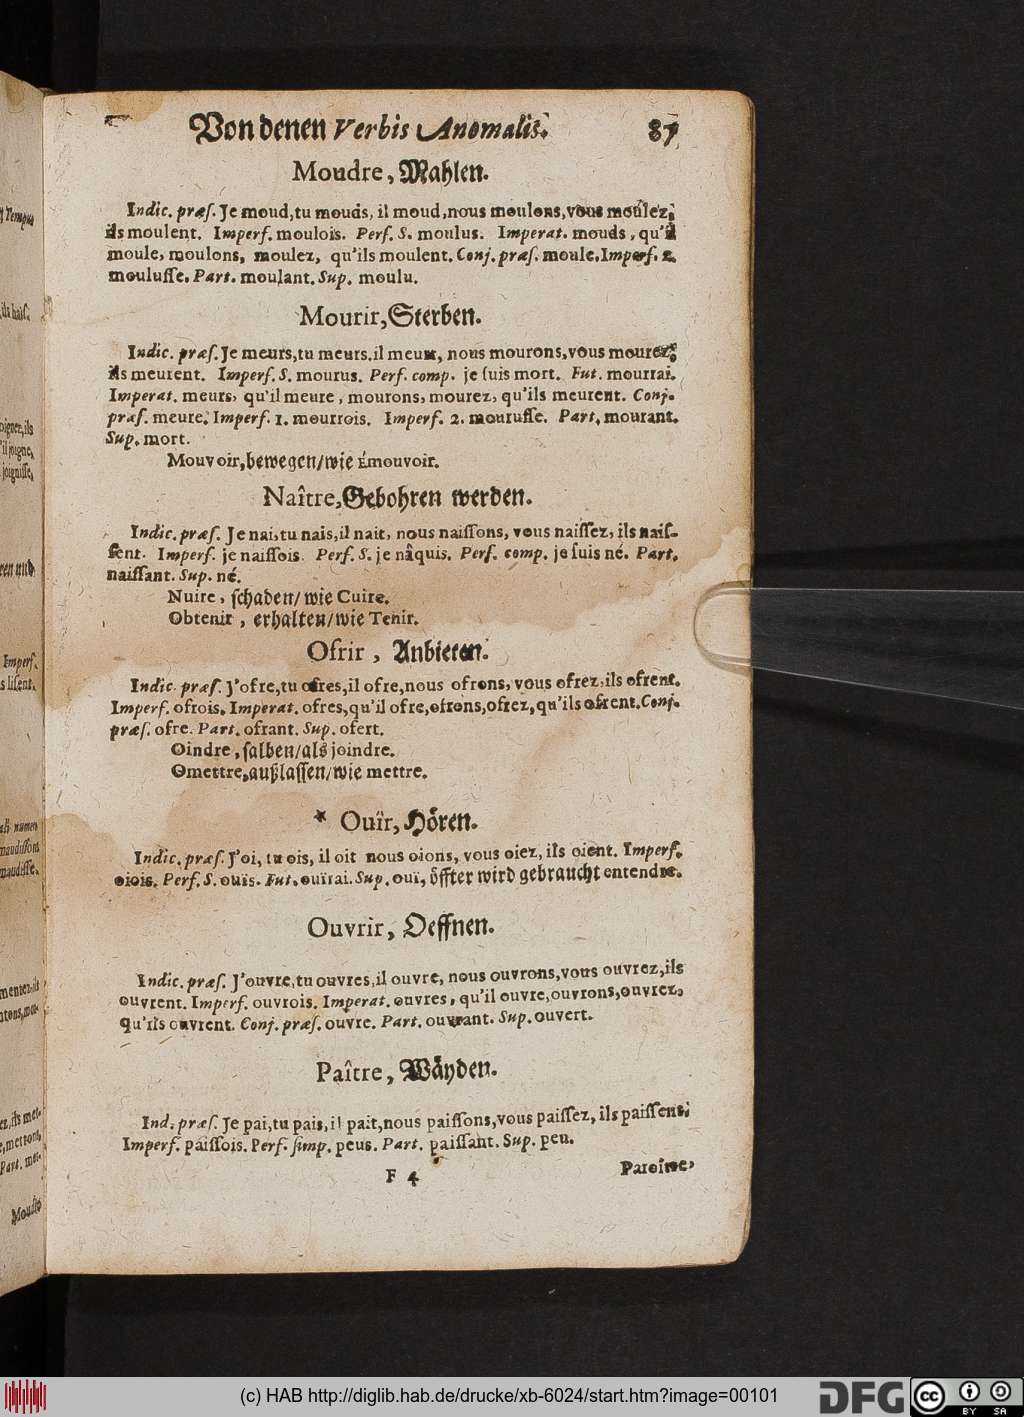 Von denen Verbis Anomalis. 87
Moudre, Mahlen.
Indic. præſ. Je moud, tu mouds, il moud, nous moulons, vous moulez,
ils moulent. Imperf. moulois. Perf. S. moulus. Imperat. mouds, qu'il
moule, moulons, moulez, qu'ils moulent. Conj. præſ. moule. Imperf. 2.
mouluſſe. Part. moulant. Sup. moulu.
Mourir, Sterben.
Indic. præſ. Je meurs, tu meurs, il meurt, nous mourons, vous mourez,
ils meurent. Imperf. S. mourus. Perf. comp. je ſuis mort. Fut. mourrai.
Imperat. meurs, qu'il meure, mourons, mourez, qu'ils meurent. Conj.
præſ. meure. Imperf. 1. mourrois. Imperf. 2. mouruſſe. Part. mourant.
Sup. mort.
Mouvoir, bewegen/ wie Émouvoir.
Naître, Gebohren werden.
Indic. præſ. Je nai, tu nais, il nait, nous naiſſons, vous naiſſez, ils naiſ-
ſent. Imperf. je naiſſois. Perf. S. je nâquis. Perf. comp. je ſuis né. Part.
naiſſant. Sup. né.
Nuire, ſchaden/ wie Cuire.
Obtenir, erhalten/ wie Tenir.
Ofrir, Anbieten.
Indic. præſ. J'ofre, tu ofres, il ofre, nous ofrons, vous ofrez, ils ofrent.
Imperf. ofrois. Imperat. ofres, qu'il ofre, ofrons, ofrez, qu'ils ofrent. Conj.
præſ. ofre. Part. ofrant. Sup. ofert.
Oindre, ſalben/ als joindre.
Omettre, außlaſſen/ wie mettre.
* Ouïr, Hören.
Indic. præſ. J'oi, tu ois, il oit nous oions, vous oiez, ils oient. Imperf.
oiois. Perf. S. ouïs. Fut. ouïrai. Sup. ouï, öffter wird gebraucht entendre.
Ouvrir, Oeffnen.
Indic. præſ. J'ouvre, tu ouvres, il ouvre, nous ouvrons, vous ouvrez, ils
ouvrent. Imperf. ouvrois. Imperat. ouvres, qu'il ouvre, ouvrons, ouvrez,
qu'ils ouvrent. Conj. præſ. ouvre. Part. ouvrant. Sup. ouvert.
Paître, Wäyden.
Ind. præſ. Je pai, tu pais, il pait, nous paiſſons, vous paiſſez, ils paiſſent.
Imperf. paiſſois. Perf. ſimp. peus. Part. paiſſant. Sup. peu.
F 4 Paroître,
(c) HAB http://diglib.hab.de/drucke/xb-6024/start.htm?image=00101
DFG
cc BY SA